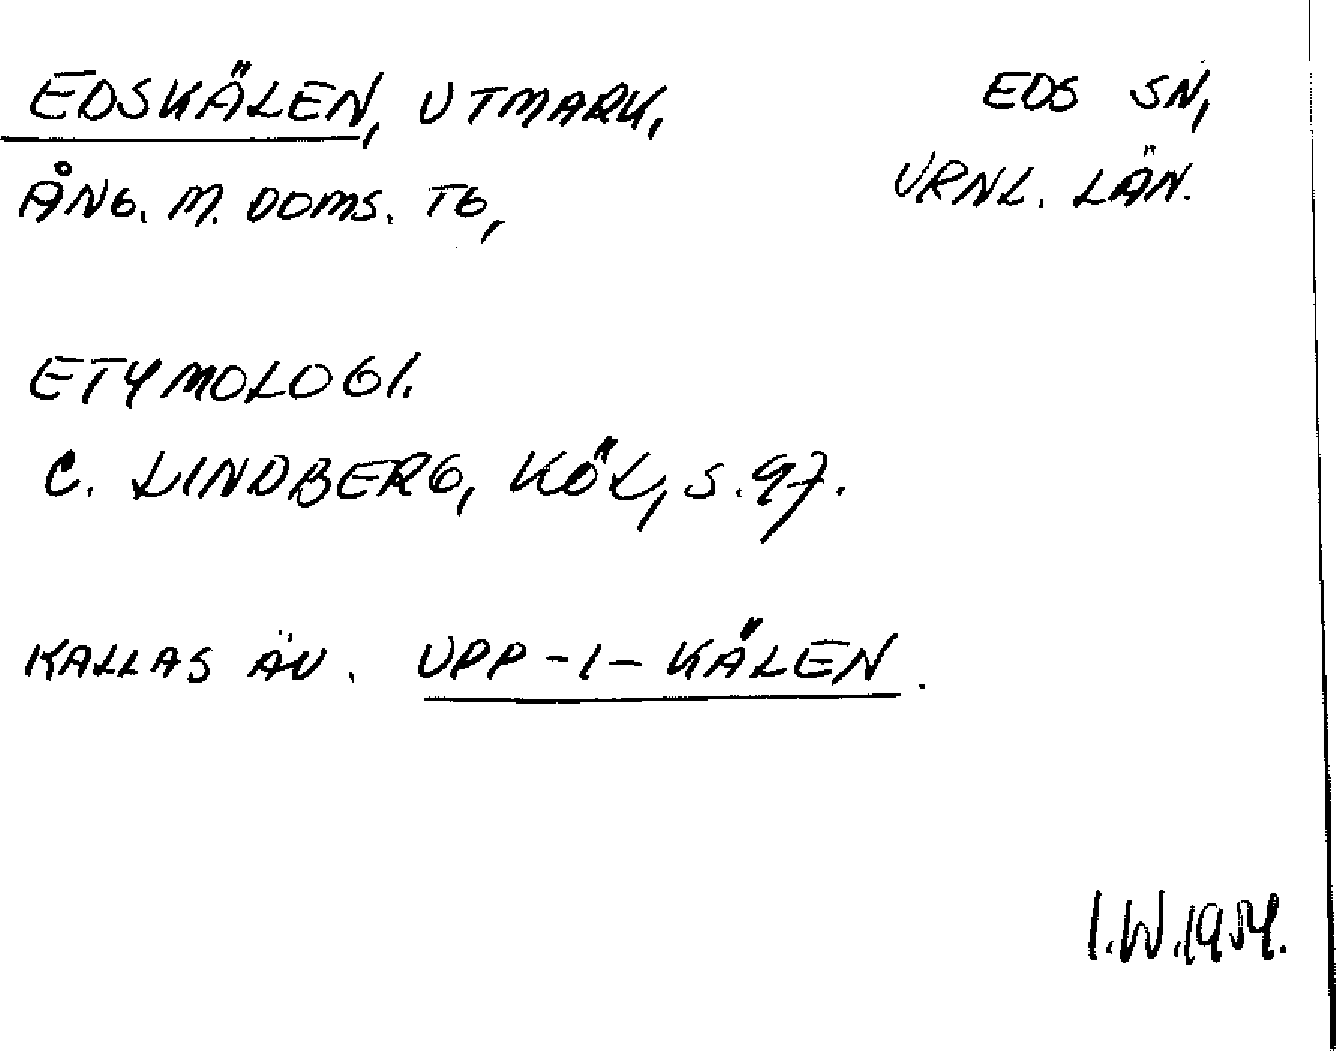 EDSKÄLEN, UTMARK,
ÅNG. M. DOMS. TG,
EDS SN,
VRNL. LÄN.
ETYMOLOGI.
C. LINDBERG, KÖL, S. 97.
KALLAS ÄV. UPP-I-KÄLEN.
I.W. 1954.